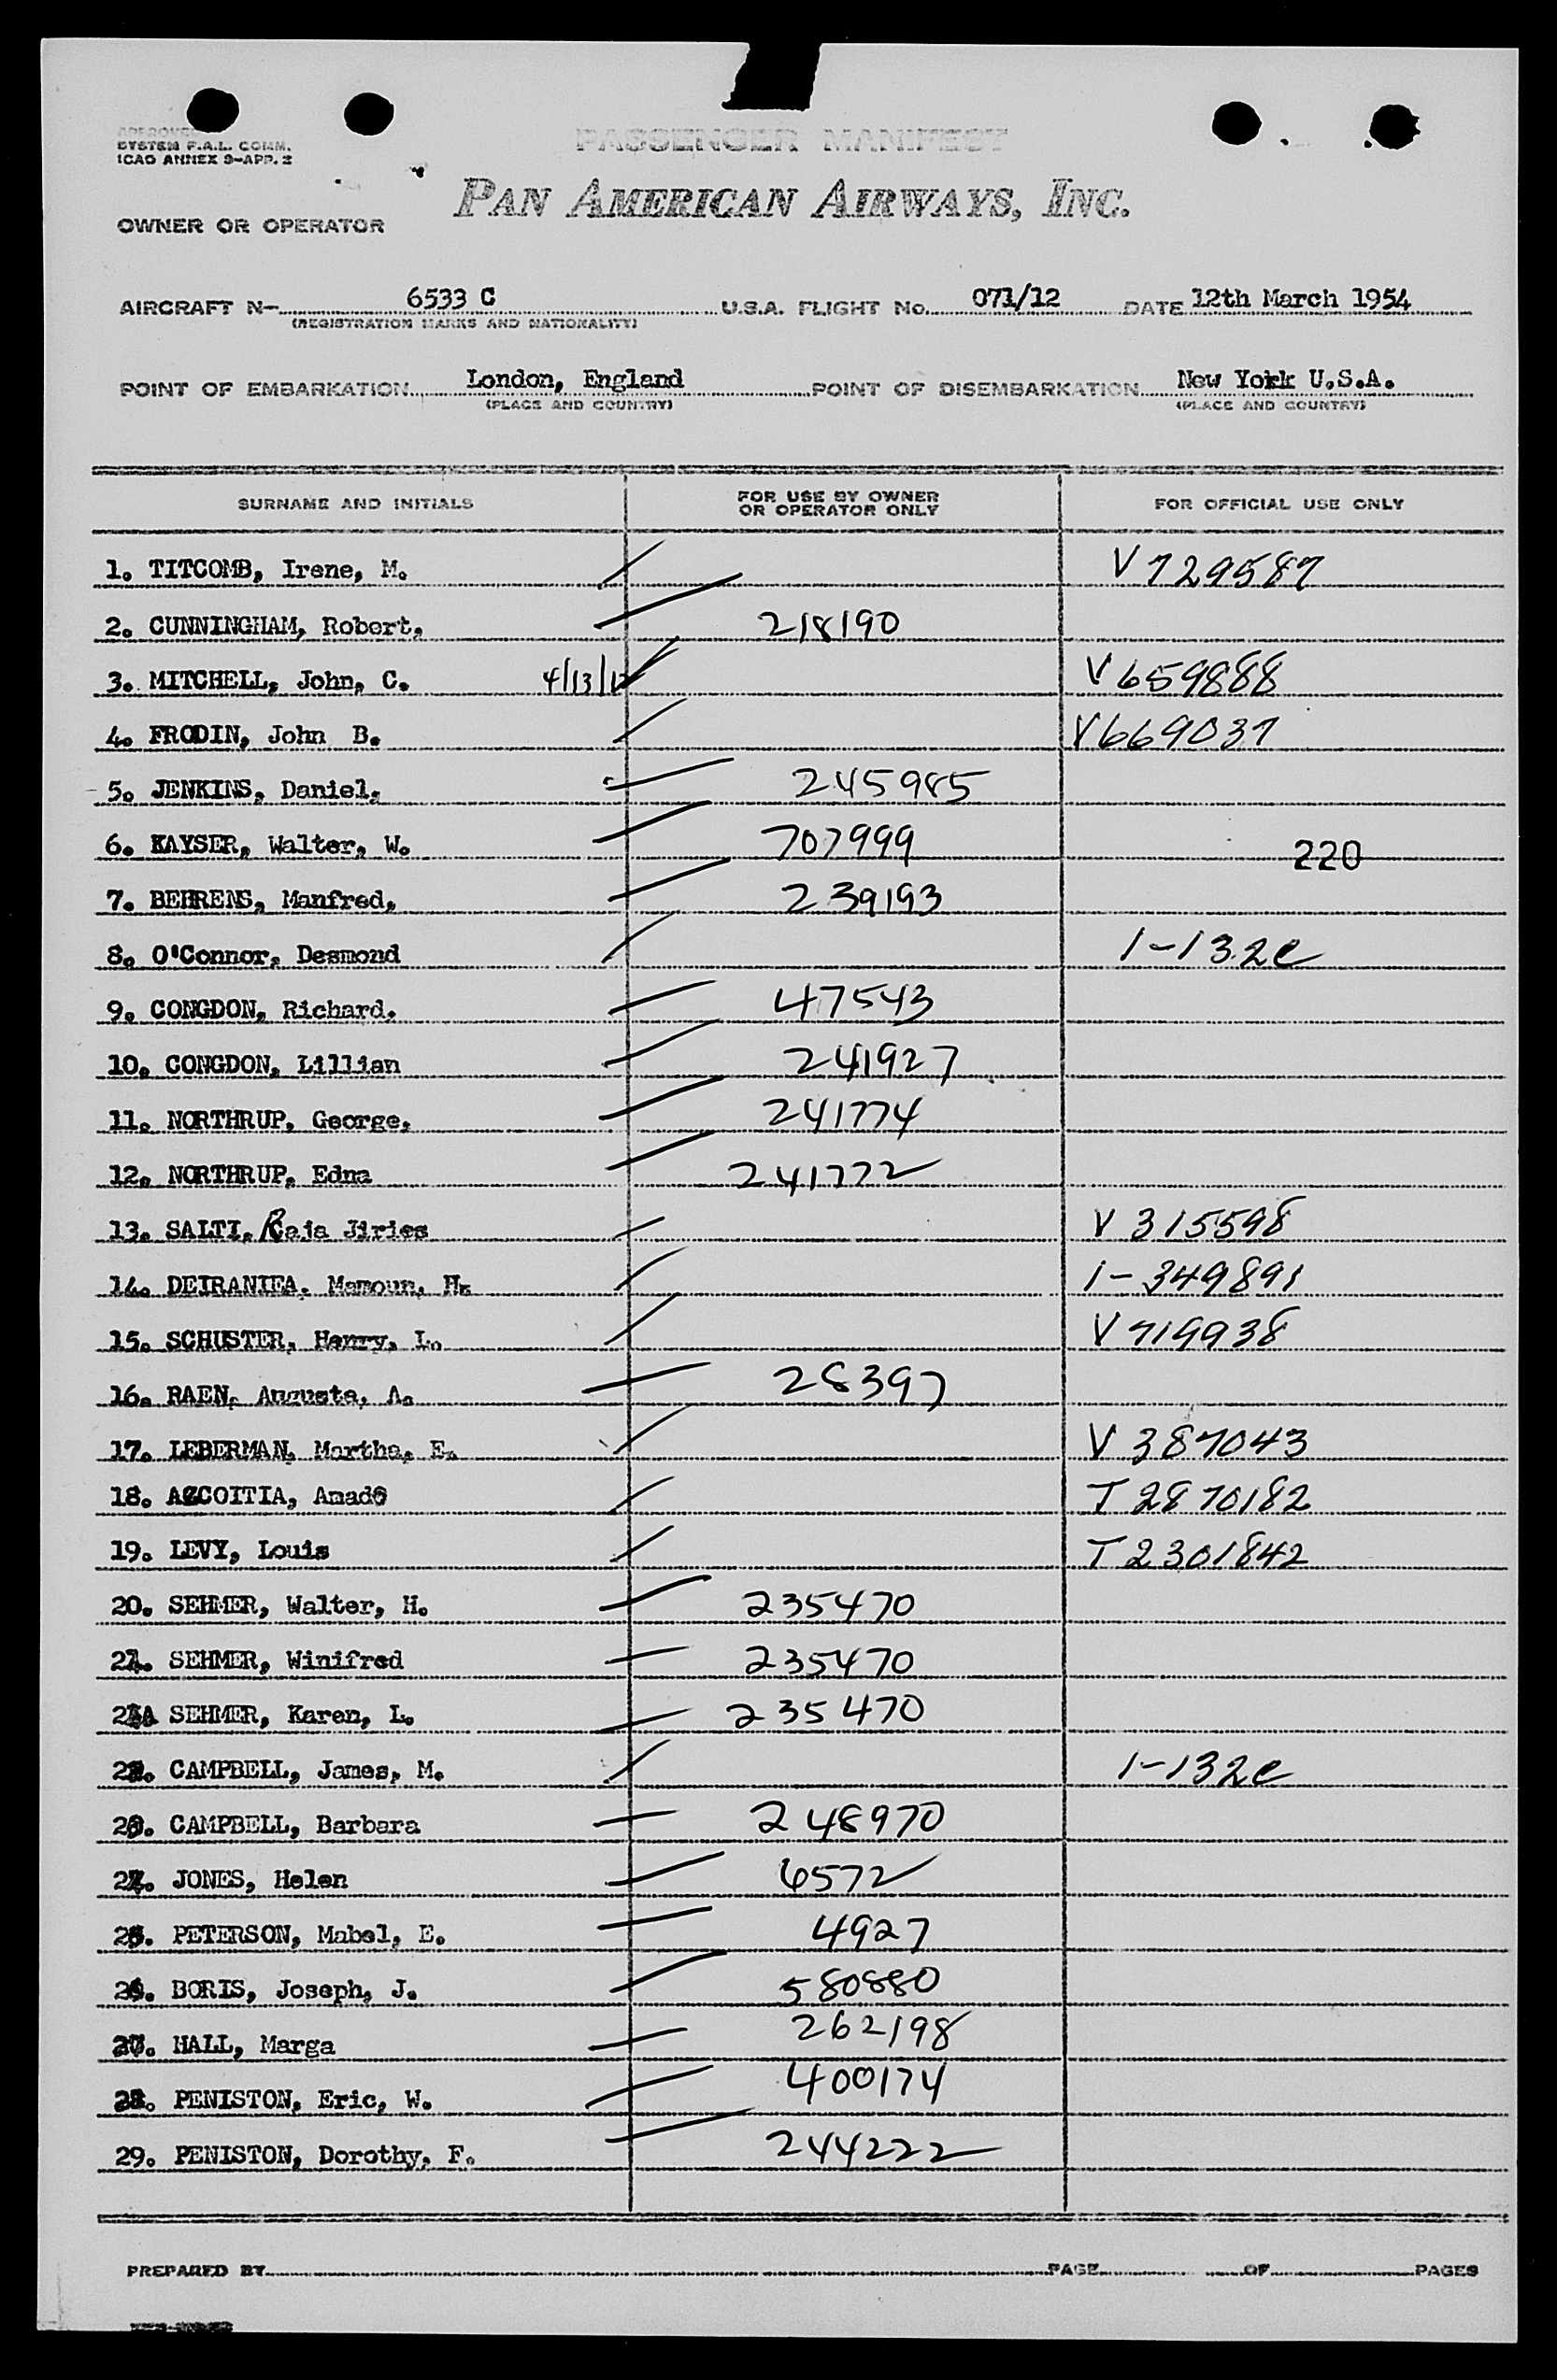 APPROVED
SYSTEM F.A.L. COMM.
ICAO ANNEX 9-APP. 2
PASSENGER MANIFEST
OWNER OR OPERATOR PAN AMERICAN AIRWAYS, INC.
AIRCRAFT N- 6533 C U.S.A. FLIGHT No. 071/12 DATE 12th March 1954
(REGISTRATION MARKS AND NATIONALITY)
POINT OF EMBARKATION London, England POINT OF DISEMBARKATION New York U.S.A.
(PLACE AND COUNTRY) (PLACE AND COUNTRY)
SURNAME AND INITIALS FOR USE BY OWNER OR OPERATOR ONLY FOR OFFICIAL USE ONLY
1. TITCOMB, Irene, M. V 729587
2. CUNNINGHAM, Robert. 218190
3. MITCHELL, John, C. 4/13/12 V 659888
4. FRODIN, John B. V669037
5. JENKINS, Daniel. 245985
6. KAYSER, Walter, W. 707999 220
7. BEHRENS, Manfred, 239193
8. O'Connor, Desmond 1-132c
9. CONGDON, Richard. 47543
10. CONGDON, Lillian 241927
11. NORTHRUP, George. 241774
12. NORTHRUP, Edna 241772
13. SALTI, Raja Jiries V 315598
14. DEIRANIEA. Mamoun, H. 1-349891
15. SCHUSTER, Henry, L. V 719938
16. RAEN, Augusta, A. 28397
17. LEBERMAN, Martha, E. V 387043
18. AZCOITIA, Amado T 2870182
19. LEVY, Louis T 2301842
20. SEHMER, Walter, H. 235470
21. SEHMER, Winifred 235470
21A SEHMER, Karen, L. 235470
22. CAMPBELL, James, M. 1-132c
23. CAMPBELL, Barbara 248970
24. JONES, Helen 6572
25. PETERSON, Mabel, E. 4927
26. BORIS, Joseph, J. 580880
27. HALL, Marga 262198
28. PENISTON, Eric, W. 400174
29. PENISTON, Dorothy, F. 244222
PREPARED BY PAGE OF PAGES